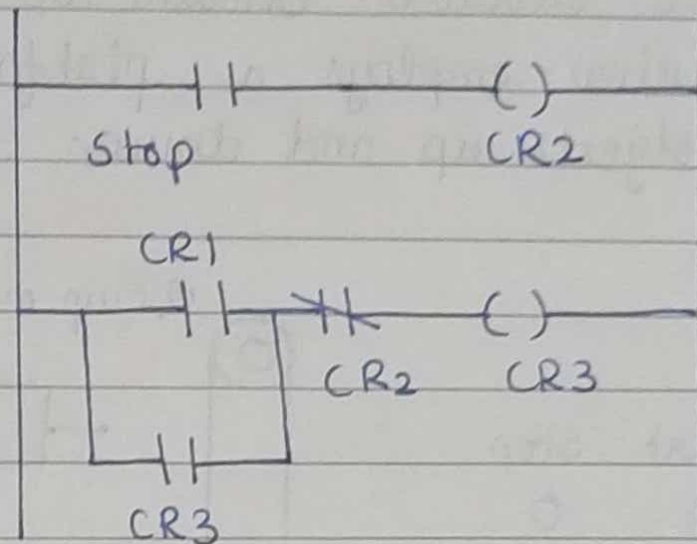 Stop CR2
CR1
CR2 CR3
CR3